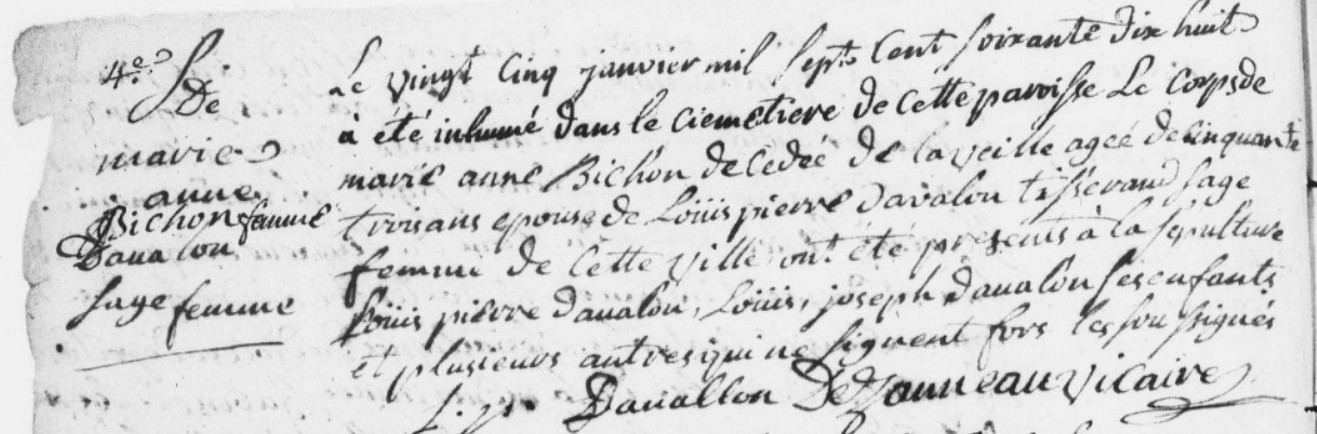 4e S. De
marie
anne
Bichon femme
Davalon
sage femme
Le vingt Cinq janvier mil sept Cent soixante dix huit
à été inhumé dans le Ciemetiere de Cette paroisse Le Corps de
marie anne Bichon de Cedeé de la veille ageé de Cinquante
trois ans epouse de Loüis pierre Davalon tisserand sage
femme de Cette ville ont été presents à la sepulture
Loüis pierre Davalon, Loüis, joseph Davalon ses enfants
et plusieurs autres qui ne signent fors les sousignés
L. p. Davallon De Zanneau vicaire